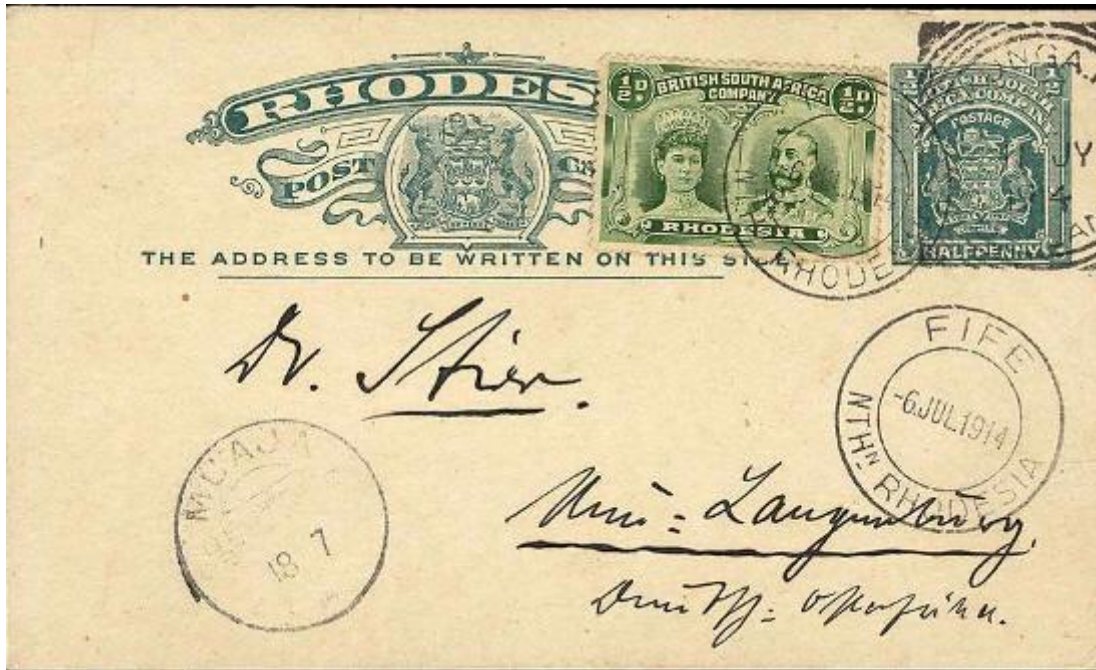 RHODES
POST CA
THE ADDRESS TO BE WRITTEN ON THIS SIDE
½D. BRITISH SOUTH AFRICA COMPANY ½D.
RHODESIA
RHODE
½ SOUTH ½
CA COMPANY
POSTAGE
HALFPENNY
JY
Dr. Stier.
FIFE
-6 JUL 1914
NTHN RHODESIA
MUAJA
18 7
Neu-Langenburg.
Deutsch-Ostafrika.